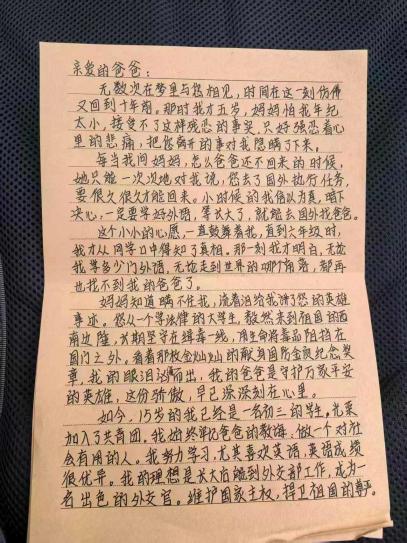 亲爱的爸爸：
无数次在梦里与您相见，时间在这一刻仿佛
又回到十年前。那时我才五岁，妈妈怕我年纪
太小，接受不了这样残忍的事实，只好强忍着心
里的悲痛，把您离开的事对我隐瞒了下来。
每当我问妈妈，怎么爸爸还不回来的时候，
她只能一次次地对我说，您去了国外执行任务，
要很久很久才能回来。小时候的我信以为真，暗下
决心，一定要学好外语，等长大了，就能去国外找爸爸。
这个小小的心愿，一直鼓舞着我，直到六年级时，
我才从同学口中得知了真相。那一刻我才明白，无论
我学多少门外语，无论走到世界的哪个角落，都再
也找不到我的爸爸了。
妈妈知道瞒不住我，流着泪给我讲了您的英雄
事迹。您从一个学法律的大学生，毅然来到祖国的西
南边陲，长期坚守在缉毒一线，用生命将毒品阻挡在
国门之外。看着那枚金灿灿的献身国防金质纪念奖
章，我的眼泪汹涌而出，我的爸爸是守护万家平安
的英雄，这份骄傲，早已深深刻在心里。
如今，15岁的我已经是一名初三的学生，光荣
加入了共青团。我始终牢记爸爸的教诲，做一个对社
会有用的人。我努力学习，尤其喜欢英语，英语成绩
很优异。我的理想是长大后能到外交部工作，成为一
名出色的外交官。维护国家主权，捍卫祖国的尊严。